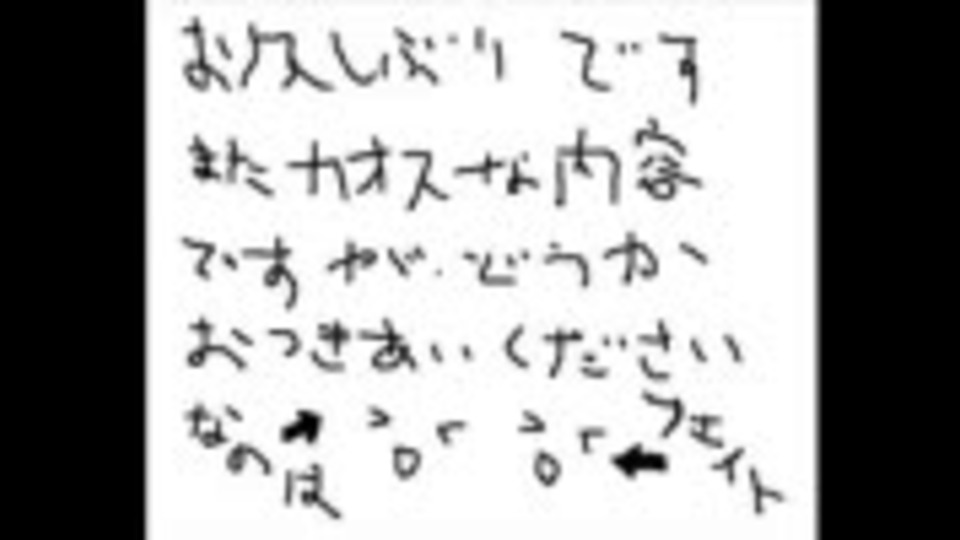 お久しぶりです
またカオスな内容
ですやが、どうか
おつきあいください
なのは フェイト